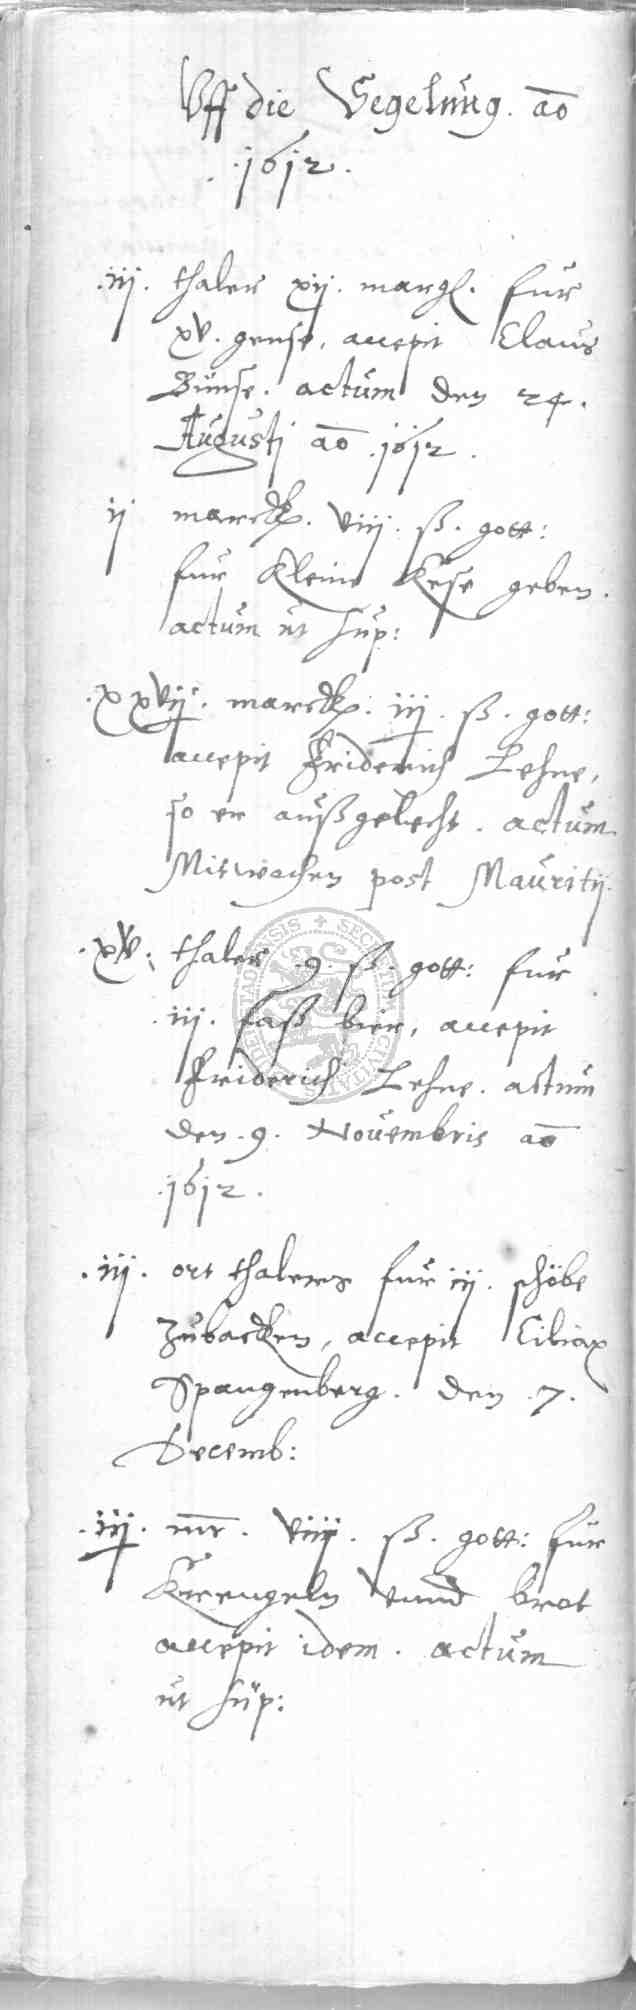 Uff die Segelung. ao
.1612.
.iij. thaler xij. margl. fur
xv. gense, accepit Claus
Bünse. actum den 24.
Augusti ao .1612.
ij marckh. viiij. ß. gott:
fur Kleine Kese geben.
actum ut sup:
.xxvij. marckh. iij. ß. gott:
accepit Friderich Lehne,
so er außgelecht. actum
Mitwochen post Mauritij.
.xv. thaler .9. ß. gott: fur
.iij. faß bier, accepit
Friderich Lehne. actum
den .9. Novembris ao
.1612.
.iij. ort thalers fur iij. schöbe
Zubacken, accepit Ciliax
Spangenberg. den .7.
Decemb:
.iij. mr. viiij. ß. gott: fur
Krengeln unnd brot
accepit idem. actum
ut sup:
SECRETUM CIVITATIS